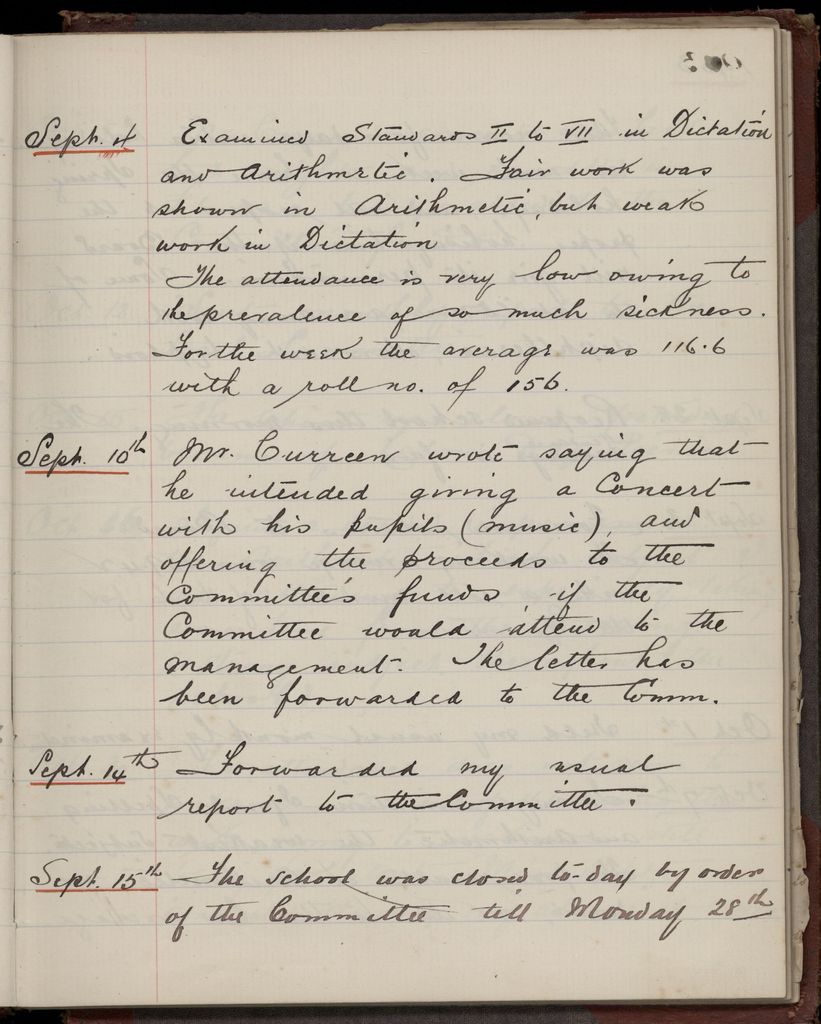 Sept. 4 Examined Standards II to VII in Dictation
and Arithmetic. Fair work was
shown in Arithmetic, but weak
work in Dictation
The attendance is very low owing to
the prevalence of so much sickness.
For the week the average was 116.6
with a roll no. of 156.
Sept. 10th Mr. Curreen wrote saying that
he intended giving a Concert
with his pupils (music), and
offering the proceeds to the
Committee's funds if the
Committee would attend to the
management. The letter has
been forwarded to the Comm.
Sept. 14th Forwarded my usual
report to the Committee.
Sept. 15th The school was closed to-day by order
of the Committee till Monday 28th